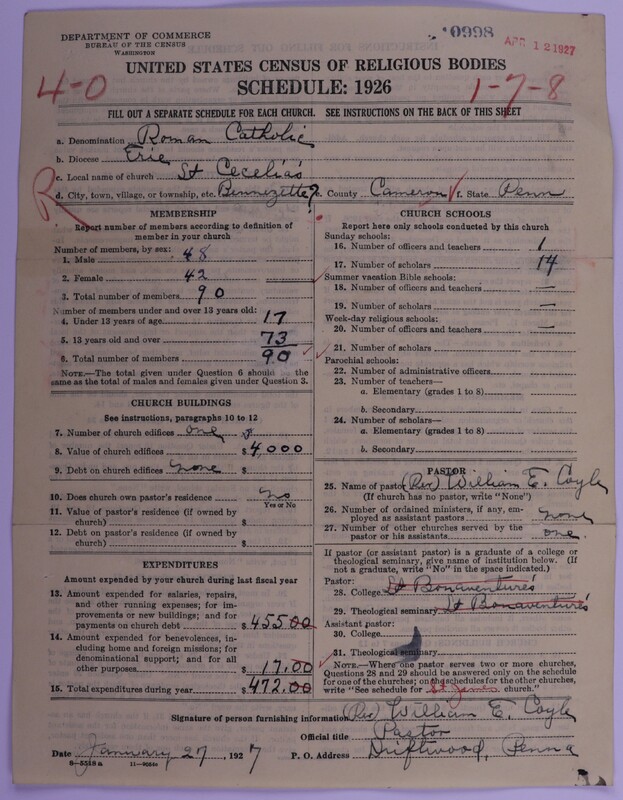 DEPARTMENT OF COMMERCE
BUREAU OF THE CENSUS
WASHINGTON
0998
APR 12 1927
UNITED STATES CENSUS OF RELIGIOUS BODIES
SCHEDULE: 1926
4-0
1-7-8
FILL OUT A SEPARATE SCHEDULE FOR EACH CHURCH. SEE INSTRUCTIONS ON THE BACK OF THIS SHEET
a. Denomination Roman Catholic
b. Diocese Erie
c. Local name of church St Cecelia's
R
d. City, town, village, or township, etc. Bennezette ? e. County Cameron f. State Penn
MEMBERSHIP
Report number of members according to definition of
member in your church
Number of members, by sex:
1. Male 48
2. Female 42
3. Total number of members 90
Number of members under and over 13 years old:
4. Under 13 years of age 17
5. 13 years old and over 73
6. Total number of members 90
NOTE.—The total given under Question 6 should be the
same as the total of males and females given under Question 3.
CHURCH BUILDINGS
See instructions, paragraphs 10 to 12
7. Number of church edifices one
8. Value of church edifices $ 4,000
9. Debt on church edifices none $
10. Does church own pastor's residence No
Yes or No
11. Value of pastor's residence (if owned by
church) $
12. Debt on pastor's residence (if owned by
church) $
EXPENDITURES
Amount expended by your church during last fiscal year
13. Amount expended for salaries, repairs,
and other running expenses; for im-
provements or new buildings; and for
payments on church debt $ 455.00
14. Amount expended for benevolences, in-
cluding home and foreign missions; for
denominational support; and for all
other purposes $ 17.00
15. Total expenditures during year $ 472.00
CHURCH SCHOOLS
Report here only schools conducted by this church
Sunday schools:
16. Number of officers and teachers 1
17. Number of scholars 14
Summer vacation Bible schools:
18. Number of officers and teachers —
19. Number of scholars —
Week-day religious schools:
20. Number of officers and teachers —
21. Number of scholars
Parochial schools:
22. Number of administrative officers
23. Number of teachers—
a. Elementary (grades 1 to 8)
b. Secondary
24. Number of scholars—
a. Elementary (grades 1 to 8)
b. Secondary
PASTOR
25. Name of pastor (Rev) William E. Coyle
(If church has no pastor, write "None")
26. Number of ordained ministers, if any, em-
ployed as assistant pastors none
27. Number of other churches served by the
pastor or his assistants one.
If pastor (or assistant pastor) is a graduate of a college or
theological seminary, give name of institution below. (If
not a graduate, write "No" in the space indicated.)
Pastor:
28. College St Bonaventure's
29. Theological seminary St Bonaventure's
Assistant pastor:
30. College
31. Theological seminary
NOTE.—Where one pastor serves two or more churches,
Questions 28 and 29 should be answered only on the schedule
for one of the churches; on the schedules for the other churches,
write "See schedule for St James church."
Signature of person furnishing information (Rev) William E. Coyle
Official title Pastor
Date January 27, 1927 P. O. Address Driftwood, Penna
8—5518 a